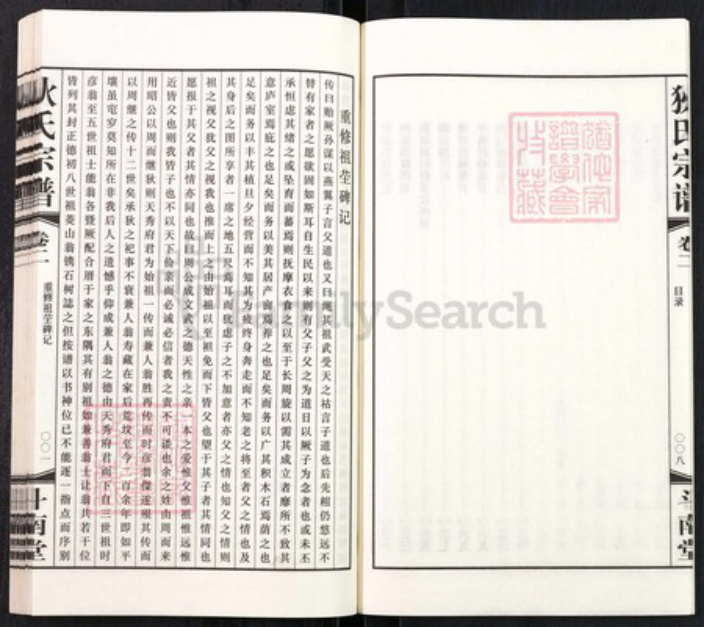 狄氏宗谱
卷二
目录
〇〇八
斗南堂
重修祖茔碑记
传曰贻厥孙谋以燕翼子言父道也又曰绳其祖武受天之祜言子道也后先相仍悠远不
替有家者之愿欲固如斯耳自生民以来未有父子父之为道日以厥子为念者也或未丕
承恒虑其绪之或坠育而蕃焉则抚摩衣食之以至于长周旋以需其成立者靡所不致其
意庐室焉庇之也足矣而务以美其居产畜焉养之也足矣而务以广其积木石焉荫之也
足矣而务以丰其植旦夕经营而不知其为疲终身奔走而不知老之将至者父之情也及
其身后之图所享者一席之地五尺焉耳而犹虑子之不加意者亦父之情也知父之情则
祖之视父犹父之视我也推而上之由始祖以至祖免而下皆父也望于其子者其情同也
愿报于其父者其情亦同也故曰周公成文武之德天性之亲一本之爱惟父惟祖惟远惟
近皆父也则我皆子也不以天下俭亲而必诚必信者我之责不可诿也余之姓由周而来
用昭公以周而继狄则天秀府君为始祖一传而兼人翁胜再传而时彦翁傑遂殒其传而
以周继之传十二世矣承狄之祀事不衰兼人翁寿藏在家后荒坟至今一百余年即如平
壤虽窀穸莫知所在非我后人之遗憾乎仰成兼人翁之德由天秀府君而下自三世祖时
彦翁至五世祖士能翁各暨厥配合厝于家之东隅其有别祖如兼善翁士让翁共若干位
皆列其封正德初八世祖菱山翁镌石树誌之但按谱以书神位已不能逐一指点而序别
狄氏宗谱
卷二
重修祖茔碑记
〇〇一
斗南堂
FamilySearch